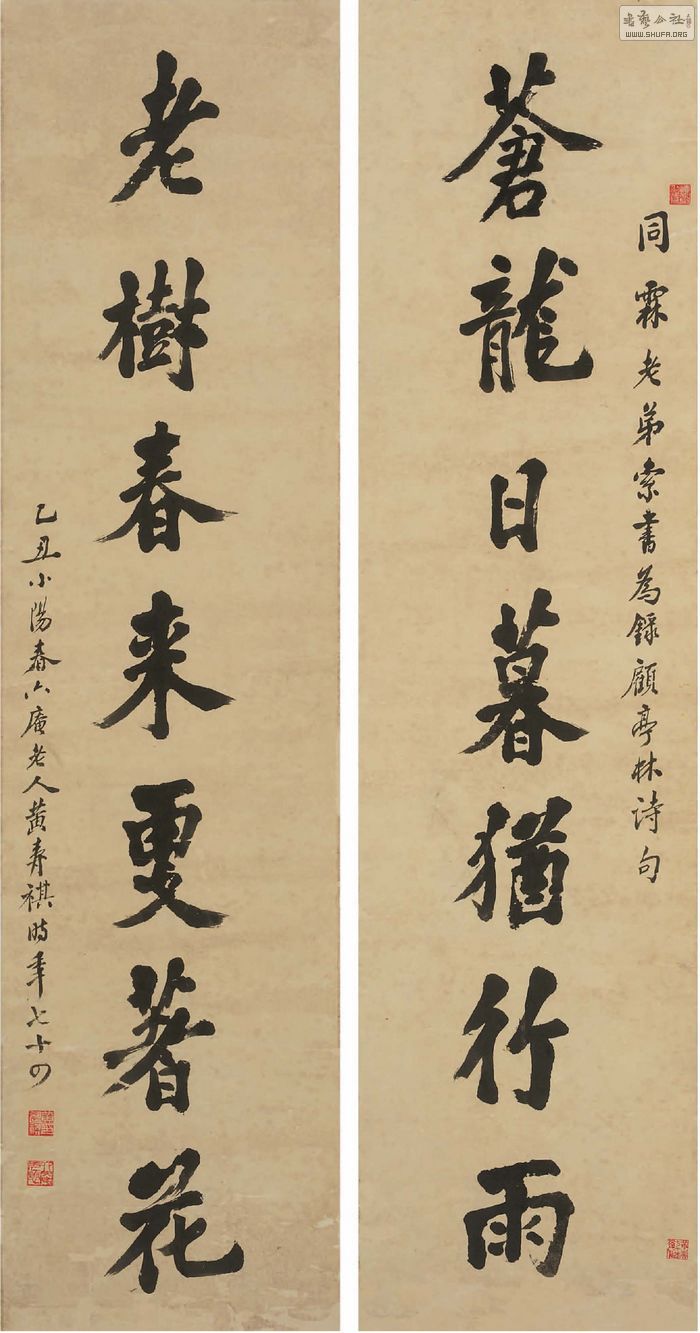 同霖老弟索書為錄顧亭林诗句
蒼龍日暮猶行雨
老樹春来更著花
乙丑小陽春六庵老人黄寿祺时年七十四
WWW.SHUFA.ORG